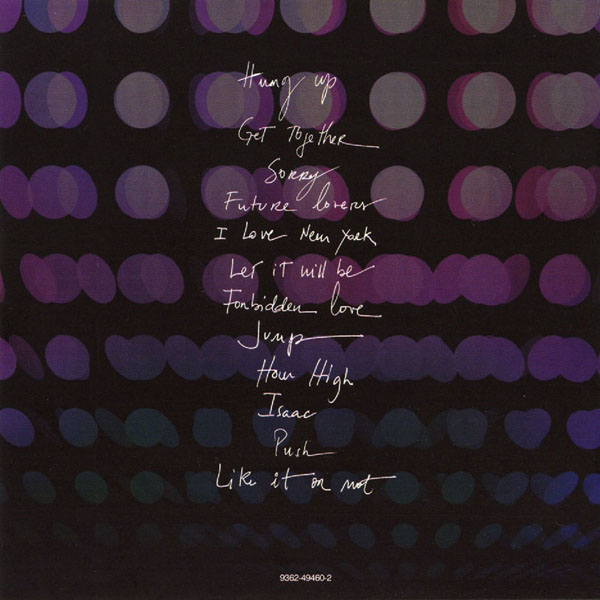 Hung up
Get Together
Sorry
Future lovers
I Love New York
Let it will be
Forbidden love
Jump
How High
Isaac
Push
Like it or not
9362-49460-2